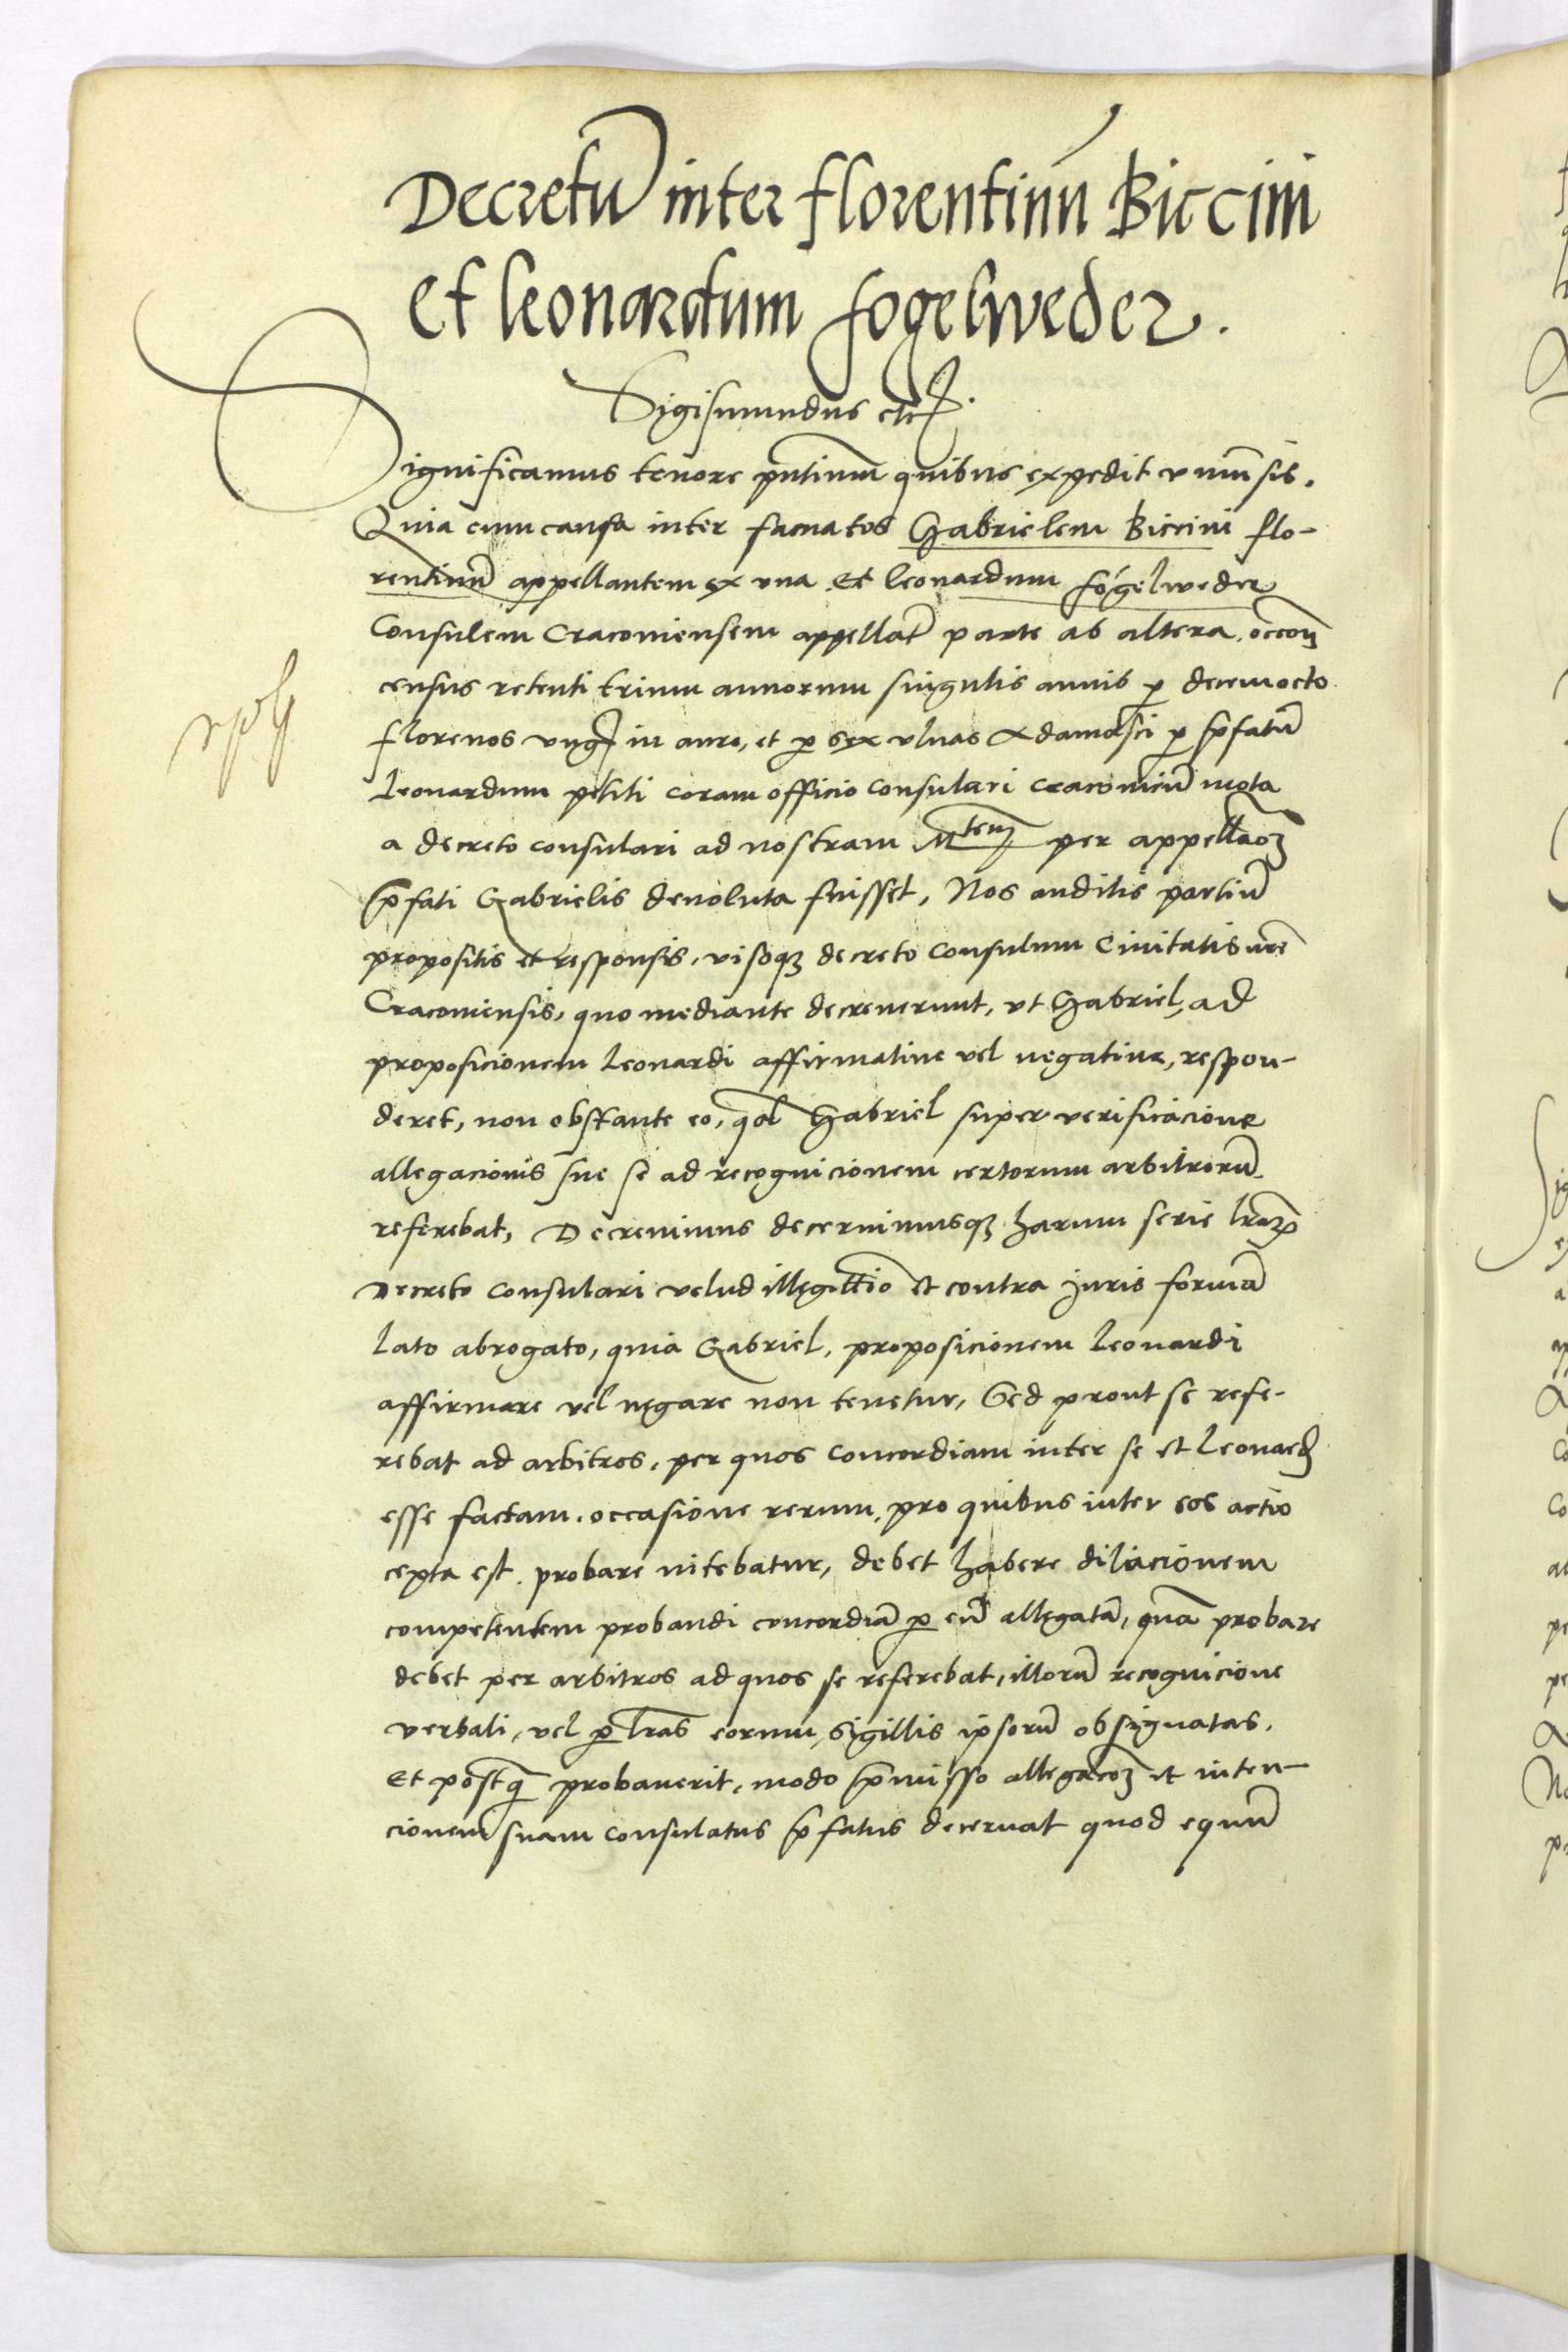 Decretū inter florentinū Biccini
et leonardum fogelweder.
Sigismundus etc.
Significamus tenore pn̄tium quibus expedit vniu͞sis.
Quia cum causa inter famatos Gabrielem Biccini flo-
rentinū appellantem ex vna et leonardum fogelweder
Consulem Cracouiensem appellat̄ parte ab altera. occoñ
census retenti trium annorum singulis annis p̱ decemocto
florenos vng in auro, et p̱ sex vlnas adamasci p̱ p̄fatū
Leonardum petiti coram officio consulari cracouien̄ mota
a decreto consulari ad nostram Mtem per appellaoꝫ
p̄fati Gabrielis deuoluta fuisset, Nos auditis partiū
propositis et responsis, visoqꝫ decreto Consulum Ciuitatis nr̄e
Cracouiensis, quo mediante decreuerunt, vt Gabriel, ad
proposicionem Leonardi affirmatiue vel negatiue, respon-
deret, non obstante eo, qđ Gabriel super verificacione
allegacionis sue se ad recognicionem certorum arbitrorū
referebat, Decreuimus decernimusqꝫ harum serie lr̄aꝝ
Decreto consulari velud illegittīo et contra Juris formā
lato abrogato, quia Gabriel, proposicionem Leonardi
affirmare vel negare non tenetur, Sed prout se refe-
rebat ad arbitros, per quos concordiam inter se et Leonard
esse factam, occasione rerum, pro quibus inter eos actio
cepta est, probare nitebatur, debet habere dilacionem
competentem probandi concordiā p̱ eū allegatā, quā probare
debet per arbitros ad quos se referebat, illorū recognicione
verbali, vel p̱ lr̄as eorum, sigillis ipsorū obsignatas.
Et postq̄ probauerit, modo p̄misso allegacoꝫ et inten-
cionem suam consulatus p̄fatus decernat quod equū